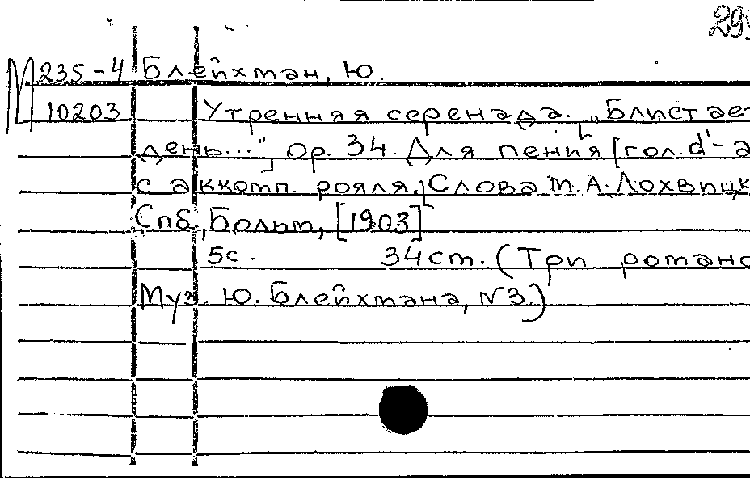 29
М 235-4 Блейхман, Ю.
10203 Утренняя серенада. „Блистае
день...", op. 34. Для пения [гол. d'-a
с аккомп. рояля. Слова М.А. Лохвицк
Спб, Больт, [1903]
5с. 34 ст. (Три романс
Муз. Ю. Блейхмана, №3.)